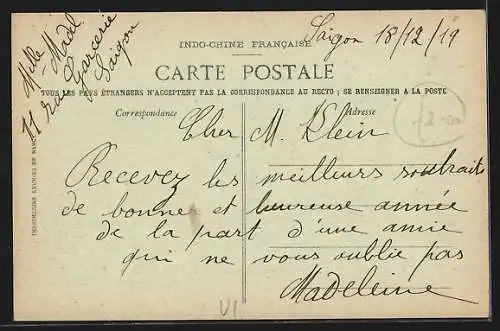 Mlle Madl
11 rue Garcerie
Saigon
Saigon 18/12/19
INDO-CHINE FRANÇAISE
CARTE POSTALE
TOUS LES PAYS ÉTRANGERS N'ACCEPTENT PAS LA CORRESPONDANCE AU RECTO ; SE RENSEIGNER A LA POSTE
Correspondance
Adresse
Cher M. Klein
Recevez les meilleurs souhaits
de bonne et heureuse année
de la part d'une amie
qui ne vous oublie pas
Madeleine
VI
IMPRIMERIES RÉUNIES DE NANCY